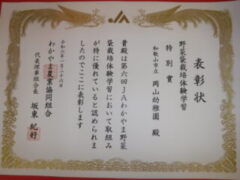 JA
表彰状
野菜袋栽培体験学習
特別賞
和歌山市立
岡山幼稚園 殿
貴殿は第六回JAわかやま野菜
袋栽培体験学習において取組み
が特に優れていると認められま
したのでここに表彰します
令和六年一月二十六日
わかやま農業協同組合
代表理事組合長 坂東 紀好